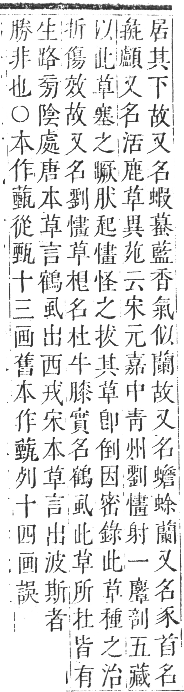 居其下故又名蝦蟇藍香氣似蘭故又名蟾蜍蘭又名豕首名
彘顱又名活鹿草異苑云宋元嘉中青州劉㦎射一麞剖五藏
以此草塞之蹶肰起㦎怪之拔其草卽倒因密錄此草種之治
折傷效故又名劉㦎草根名杜牛膝實名鶴虱此草所杜皆有
生路旁陰處唐本草言鶴虱出西戎宋本草言出波斯者
勝非也○本作薽從甄十三画舊本作列十四画誤